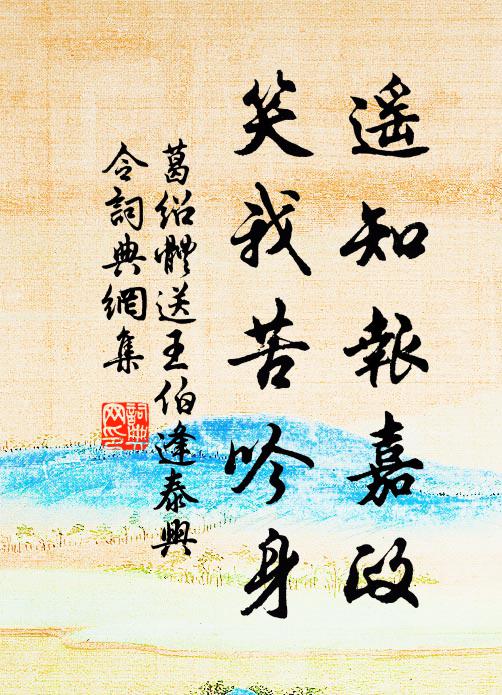 遥知報嘉政
笑我苦吟身
葛绍體送王伯逢泰興
令詞典網集
詞典網印